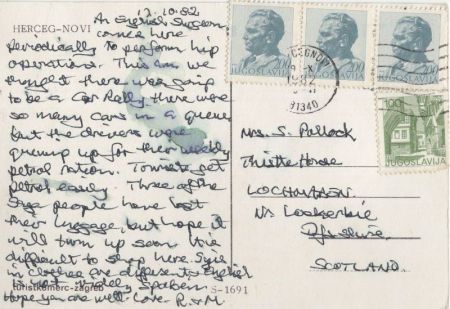 HERCEG-NOVI
12.10.82
An English Surgeon
comes here
Periodically to perform hip
operations. This am we
thought there was going
to be a Car Rally there were
so many cars in a queue
but the drivers were
queuing up for their weekly
petrol ration. Tourists get
petrol easily. Three of the
Saga people have lost
their luggage, but hope it
will turn up soon. It is
difficult to shop here. Sizes
in clothes are different & English
is not widely spoken.
Hope you are well. Love R & M
turistkomerc-zagreb
S-1691
2.00
JUGOSLAVIJA
2.00
JUGOSLAVIJA
2.00
JUGOSLAVIJA
1.00
JUGOSLAVIJA
91340
Mrs. S. Pollock
Thistle House
LOCHMABEN
Nr Lockerbie
D/shire
SCOTLAND.